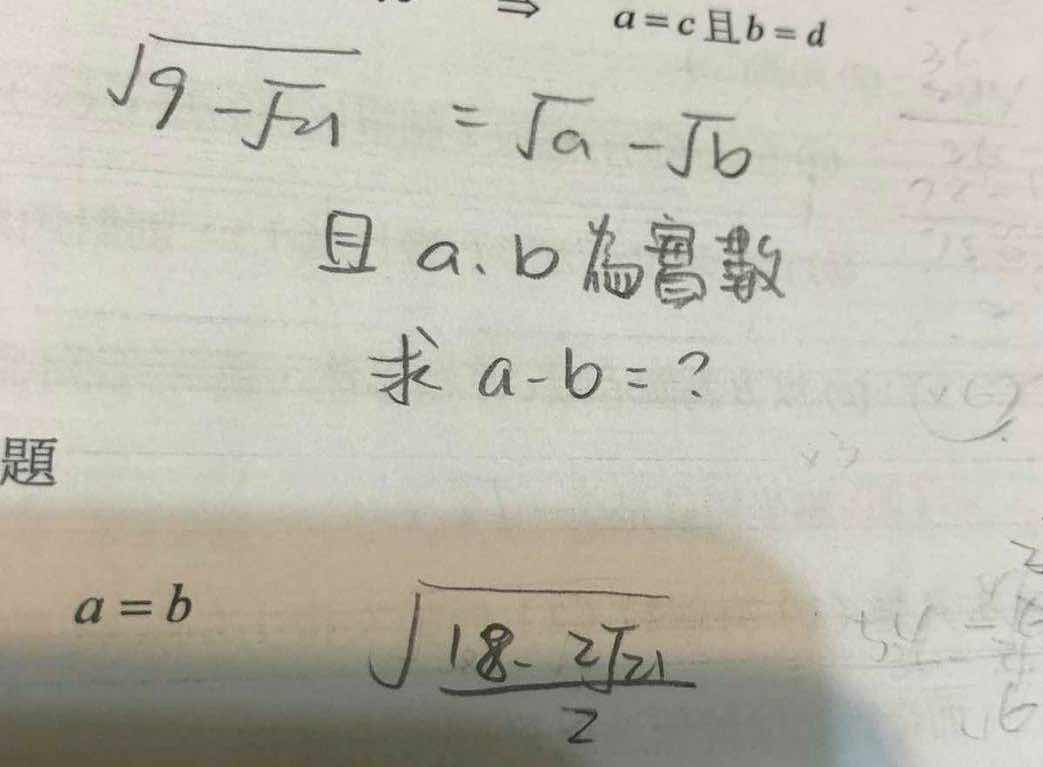 ⇒ a=c且b=d
√(9-√21) = √a - √b
且 a、b為實數
求 a-b=?
題
a=b
√((18-2√21)/2)